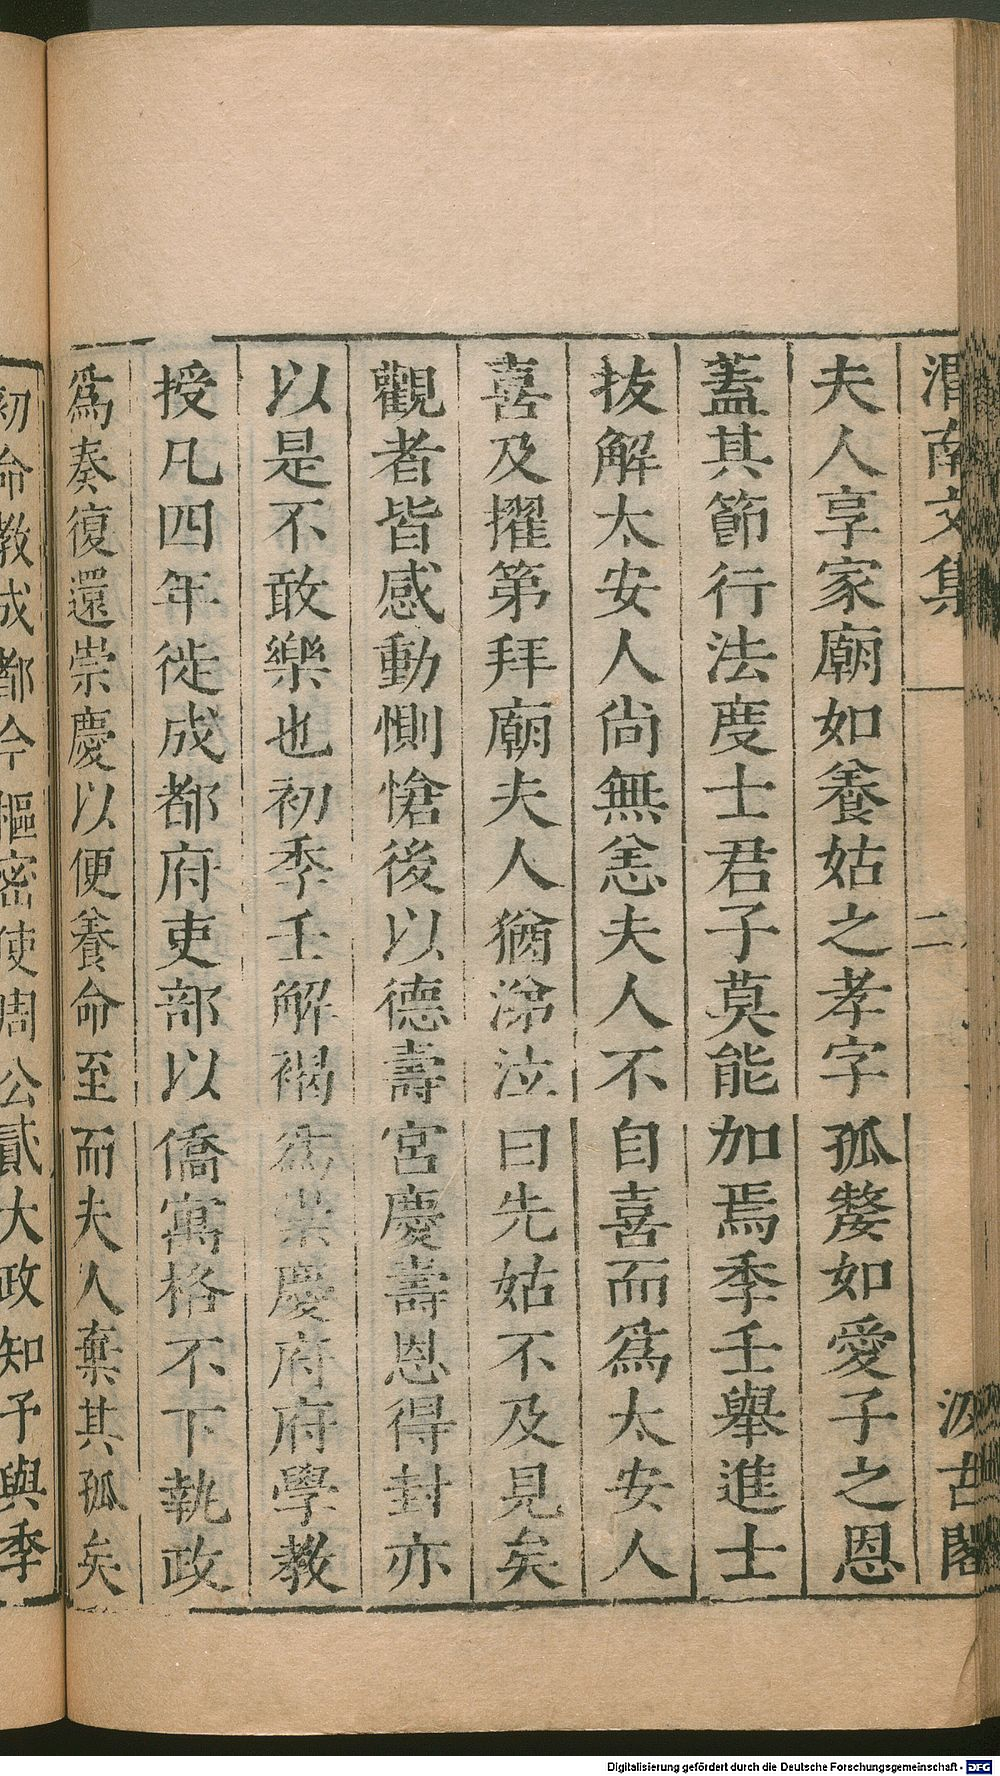 渭南文集
二
汲古閣
夫人享家廟如養姑之孝字孤嫠如愛子之恩
蓋其節行法度士君子莫能加焉季壬舉進士
拔解太安人尚無恙夫人不自喜而爲太安人
喜及擢第拜廟夫人猶涕泣曰先姑不及見矣
觀者皆感動惻愴後以德壽宮慶壽恩得封亦
以是不敢樂也初季壬解褐爲崇慶府府學教
授凡四年徙成都府吏部以僑寓格不下執政
爲奏復還崇慶以便養命至而夫人棄其孤矣
初命教成都今樞密使周公貳大政知予與季
Digitalisierung gefördert durch die Deutsche Forschungsgemeinschaft - DFG